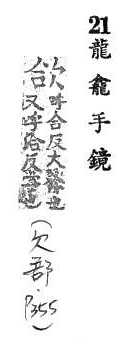 21龍龕手鏡
呼合反大歠也
又呼給反
(欠部·P355)